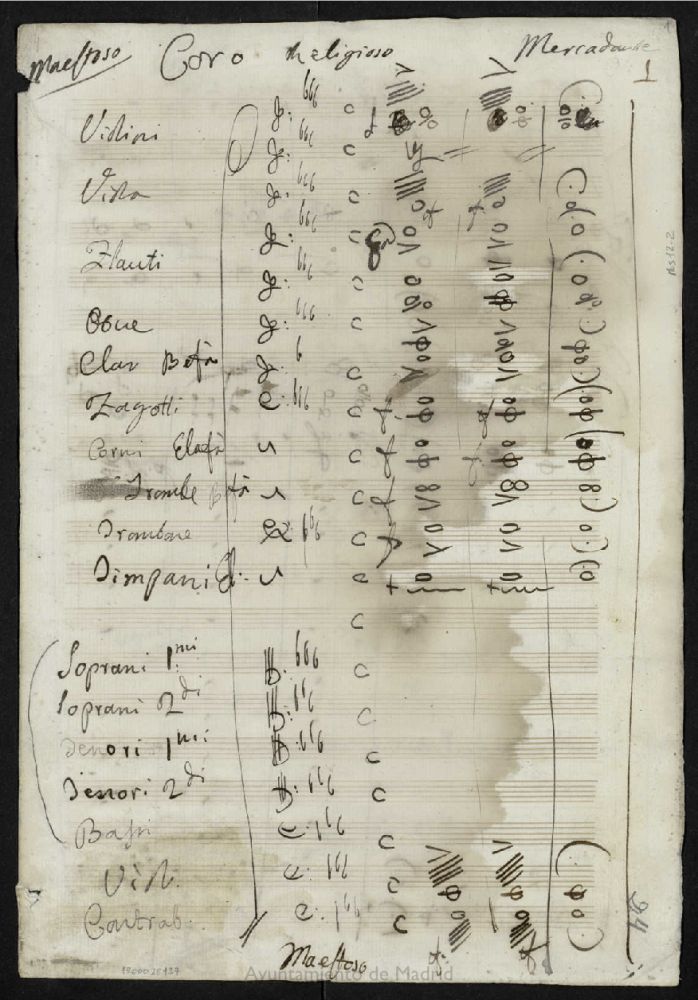 Maestoso Coro Religioso Mercadante
1
Violini
Viola
Flauti
Oboe
Clar Befà
Fagotti
Corni Elafà
Trombe Befà
Trombone
Timpani
Soprani 1mi
Soprani 2di
Tenori 1mi
Tenori 2di
Bassi
Viol.
Contrab.
Maestoso
Ayuntamiento de Madrid